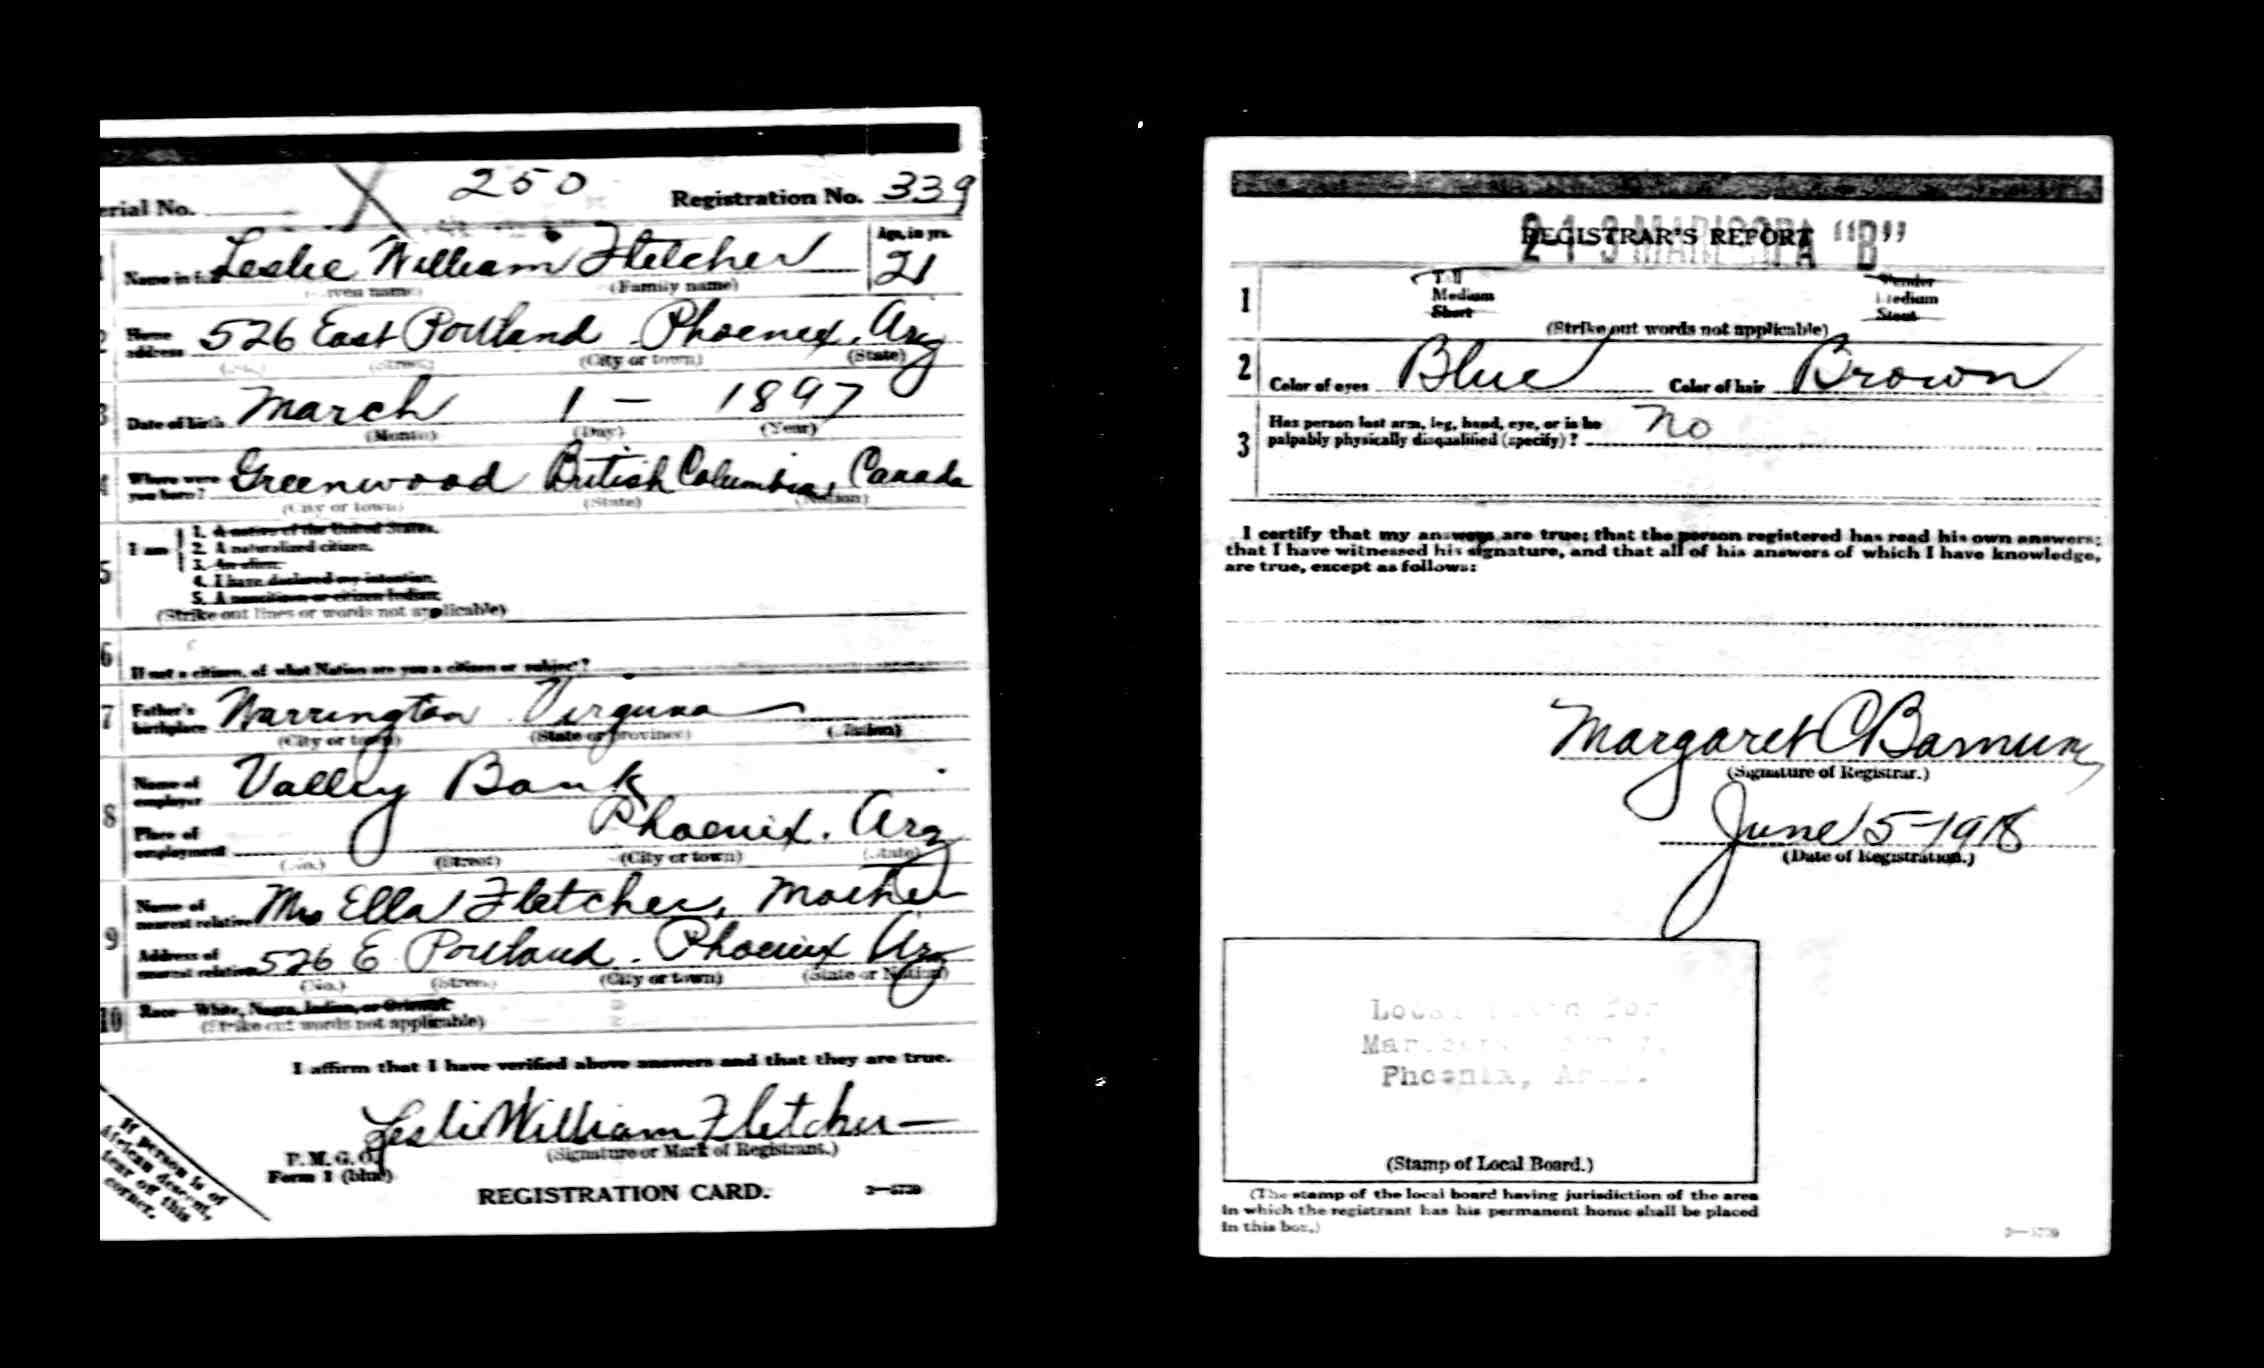 erial No. 250 Registration No. 339
1 Name in full Leslie William Fletcher Age, in yrs. 21
(Given name) (Family name)
2 Home address 526 East Portland Phoenix, Arz
(No.) (Street) (City or town) (State)
3 Date of birth March 1 - 1897
(Month) (Day) (Year)
4 Where were you born? Greenwood British Columbia, Canada
(City or town) (State) (Nation)
5 I am 1. A native of the United States.
2. A naturalized citizen.
3. An alien.
4. I have declared my intention.
5. A noncitizen or citizen Indian.
(Strike out lines or words not applicable)
6 If not a citizen, of what Nation are you a citizen or subject?
7 Father's birthplace Warrington Virginia
(City or town) (State or province) (Nation)
8 Name of employer Valley Bank
Place of employment Phoenix. Arz
(No.) (Street) (City or town) (State)
9 Name of nearest relative Mrs Ella Fletcher, Mother
Address of nearest relative 526 E Portland. Phoenix Arz
(No.) (Street) (City or town) (State or Nation)
10 Race—White, Negro, Indian, or Oriental
(Strike out words not applicable)
I affirm that I have verified above answers and that they are true.
Leslie William Fletcher
P. M. G. O. (Signature or Mark of Registrant.)
Form 1 (blue)
REGISTRATION CARD. 3—5729
If person is of
African descent,
tear off this
corner.
REGISTRAR'S REPORT
2-1-3 MARICOPA "B"
1 Tall Slender
Medium Medium
Short Stout
(Strike out words not applicable)
2 Color of eyes Blue Color of hair Brown
3 Has person lost arm, leg, hand, eye, or is he
palpably physically disqualified (specify)? No
I certify that my answers are true; that the person registered has read his own answers;
that I have witnessed his signature, and that all of his answers of which I have knowledge,
are true, except as follows:
Margaret C Barnum
(Signature of Registrar.)
June 5-1918
(Date of Registration.)
Local Board for
Phoenix,
(Stamp of Local Board.)
(The stamp of the local board having jurisdiction of the area
in which the registrant has his permanent home shall be placed
in this box.)
3—5729